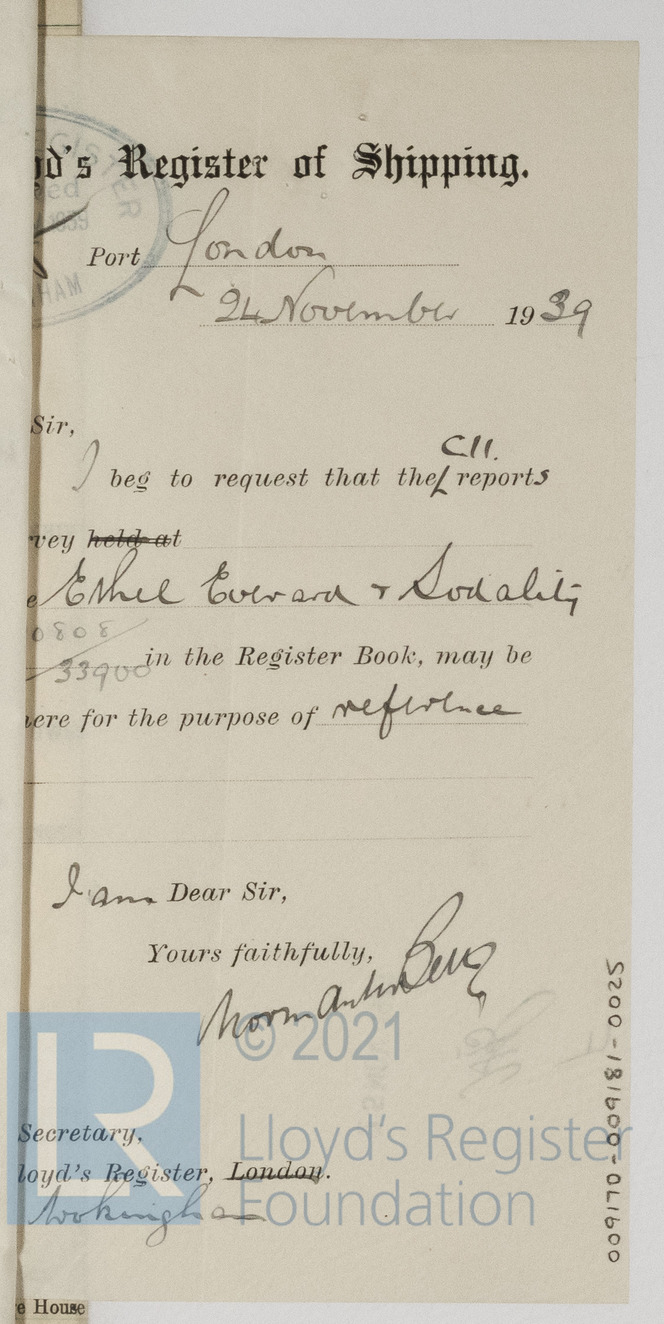 yd's Register of Shipping.
Port London
24 November 1939
Sir,
I beg to request that the C11. reports
vey held at
e Ethel Everard & Sodality
0808
33900 in the Register Book, may be
ere for the purpose of reference
I am Dear Sir,
Yours faithfully,
© 2021
LR
Secretary,
Lloyd's Register
loyd's Register, London.
Foundation
Wokingham
e House
009170-009181-0025